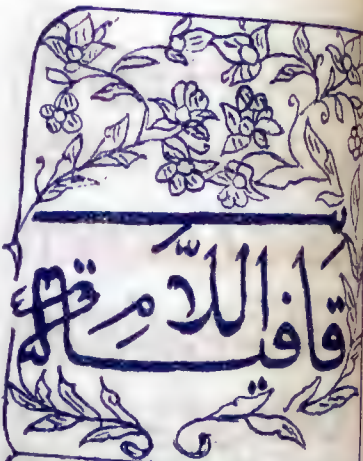 قَافيـة اللَّامِ